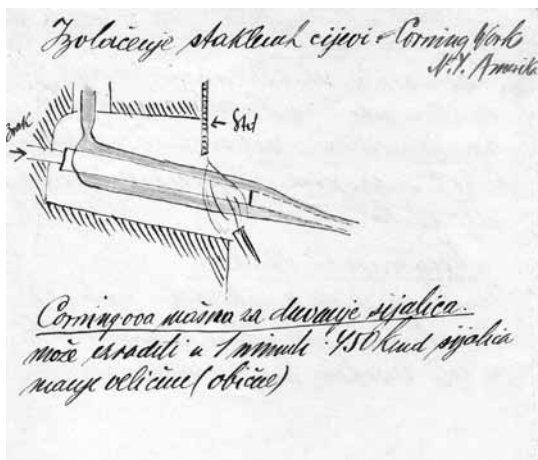 Izvlačenje staklenih cijevi = Corning Work
N.Y. Amerika
Zrak
← Štit
Corningova mašina za duvanje sijalica.
može izraditi u 1 minuti 450 kmd sijalica
manje veličine (obične)